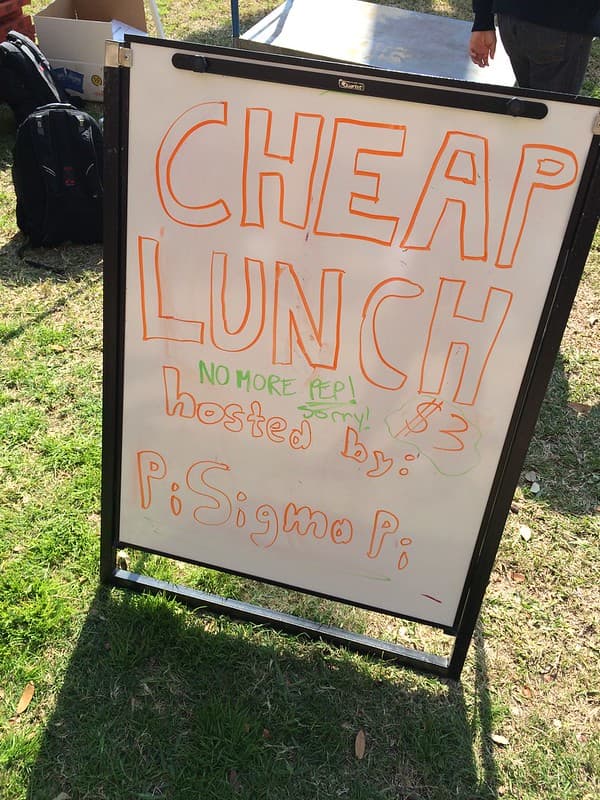 Quartet
CHEAP
LUNCH
NO MORE PEP!
Sorry!
$3
hosted by:
Pi Sigma Pi